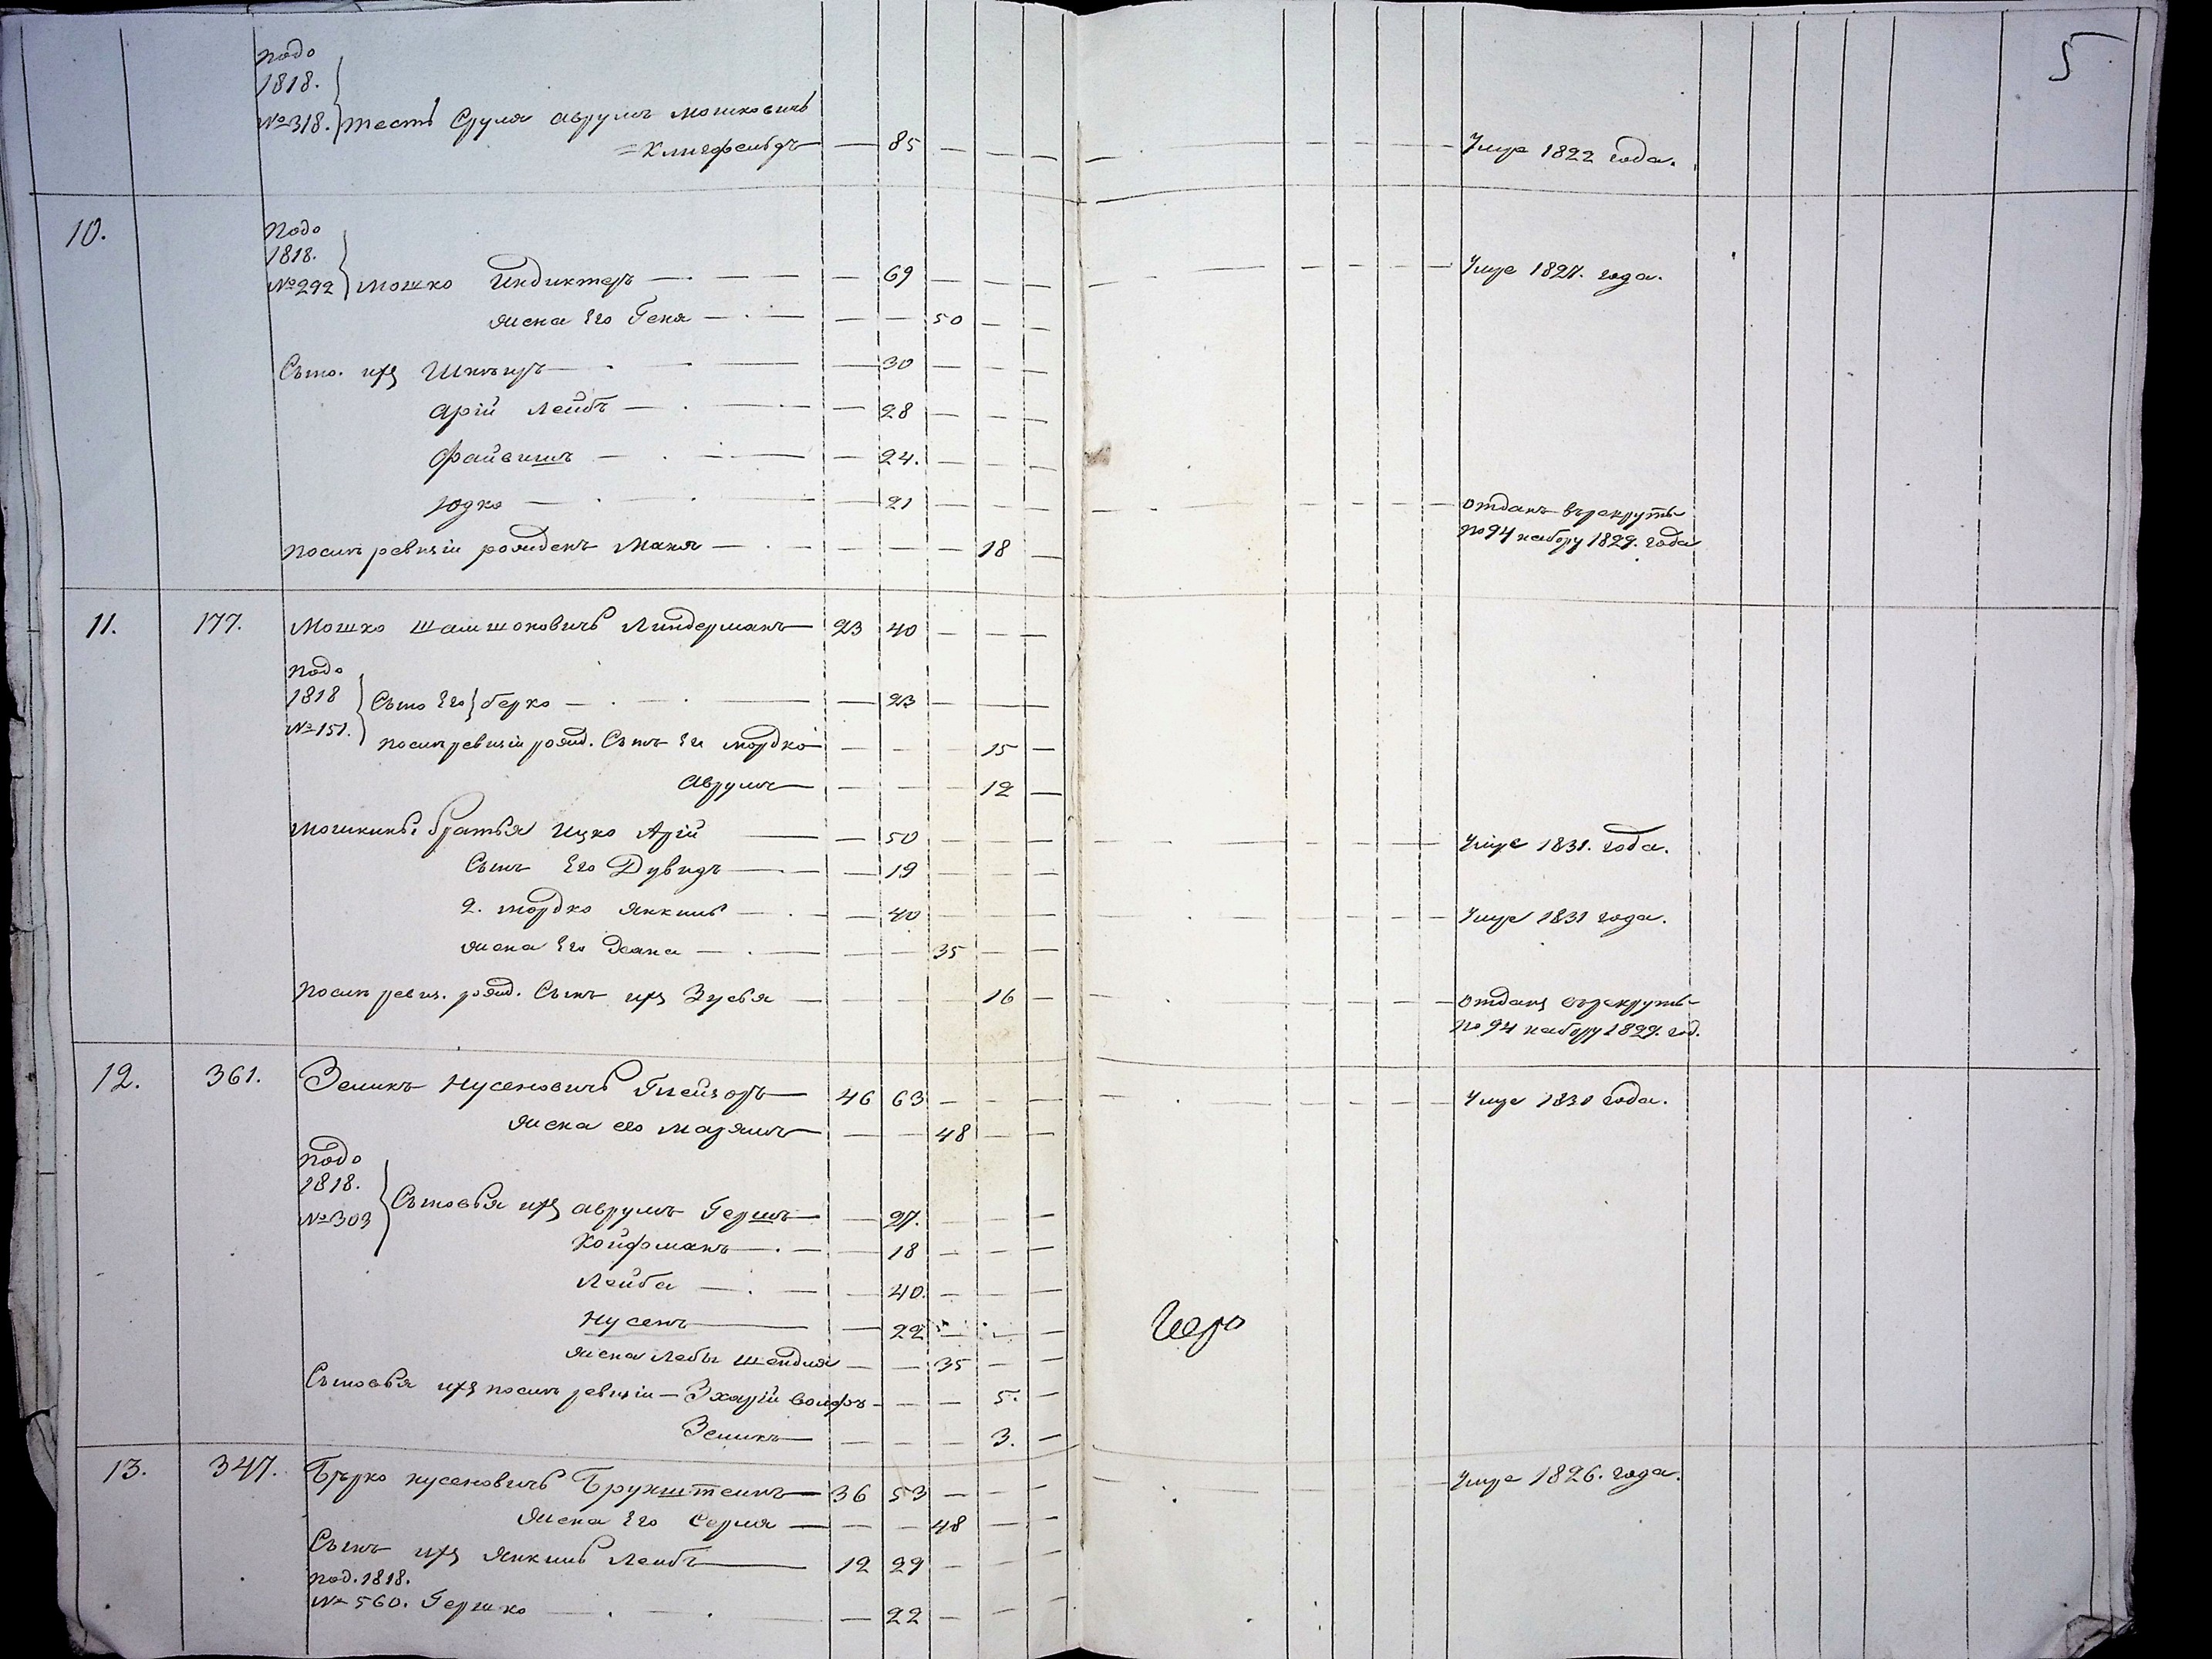 5
подо
1818.
№ 318. тесть Сруля Аврумъ Мошковичъ
Клигфельдъ 85 Умре 1822 года.
10. Подо
1818.
№ 292 Мошко Индиктеръ 69 Умре 1827. года.
жена Его Геня 50
Сыно. ихъ 30
Арій Лейбъ 28
Файвишъ 24.
Юдко 21 отданъ върекруты
послѣ ревизіи рожденъ Маня 18 по 94 набору 1829. года
11. 177. Мошко Шамшоновичъ Линдерманъ 23 40
подо
1818 Сыно Его берко 23
№ 151.
послѣ ревизіи рожд. Сынъ Ег мордко 15
Аврумъ 12
Мошкины братья Ицко Арій 50 Умре 1831. года.
Сынъ Его Дувидъ 19
2. мордко Янкиль 40 Умре 1831 года.
жена Его 35
послѣ ревиз. рожд. Сынъ ихъ Зусья 16 отданъ върекруты
по 94 набору 1829. год.
12. 361. Зеликъ Нусеновичъ Глейзоръ 46 63 Умре 1830 года.
жена его Марямъ 48
подо
1818.
№ 303 Сыновья ихъ Аврумъ Гершъ 27.
Койфманъ 18
Лейба 40.
Нусенъ 22
жена Лебы Шендля 35
Сыновья ихъ послѣ ревизіи Зхарій Волфъ 5.
Зеликъ 3.
13. 347. Бърко Нусеновичъ Брунштеинъ 36 53 Умре 1826. года.
жена Его Серля 48
Сынъ ихъ Янкиль Лейбъ 12 29
под. 1818.
№ 560. Гершко 22